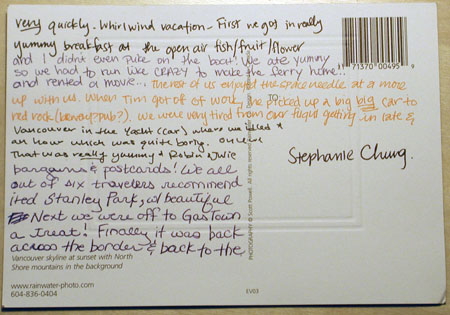 very quickly. Whirlwind vacation - First we got in really
yummy breakfast at the open air fish/fruit/flower
and I didn't even puke on the boat! We ate yummy
so we had to run like CRAZY to make the ferry home...
and rented a movie... The rest of us enjoyed the space needle at a more
up with us. When Tim got off of work, he picked up a big big car to
red rock (brewery pub?). We were very tired from our flight getting in late &
Vancouver in the Yacht (car) where we idled
an hour which was quite boring.
That was really yummy & Robin & Julie
bargains & postcards! We all
out of six travelers recommend
ited Stanley Park, w/ beautiful
Next we were off to GasTown
a treat! Finally it was back
across the border & back to the
Stephanie Chung.
71370 00495 9
PHOTOGRAPHY © Scott Powell. All rights reserved.
Vancouver skyline at sunset with North
Shore mountains in the background
www.rainwater-photo.com
604-836-0404
EV03